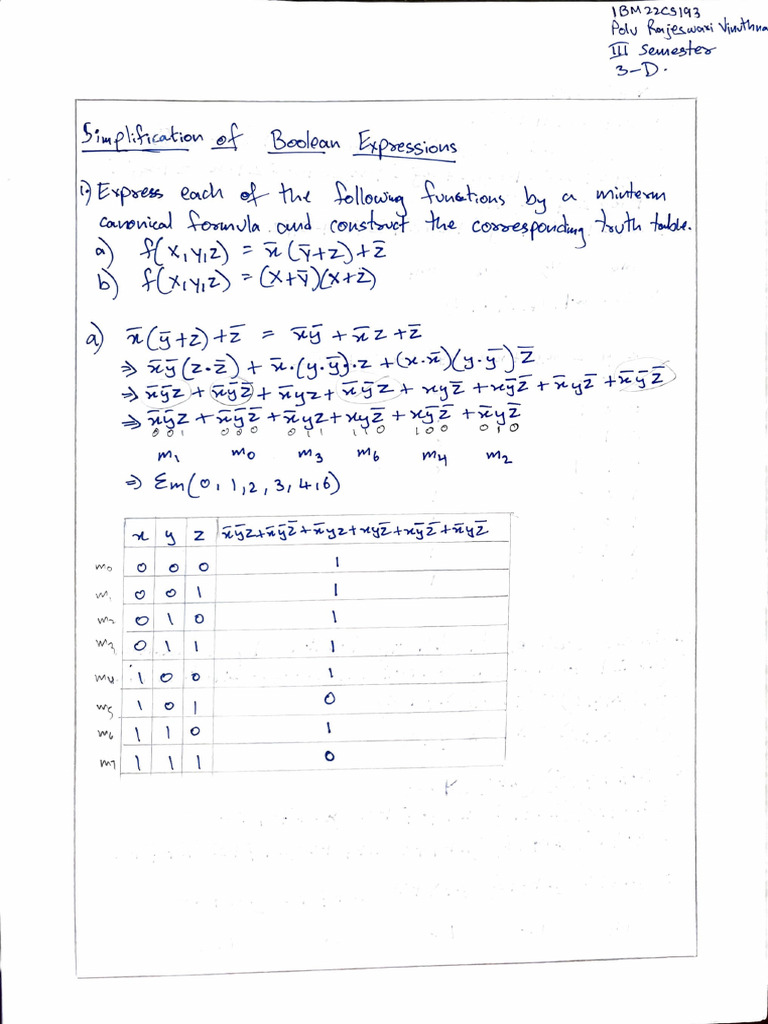 1BM22CS193
Polu Rajeswari Vinuthna
III Semester
3-D.
Simplification of Boolean Expressions
1.) Express each of the following functions by a minterm
canonical formula and construct the corresponding truth table.
a) f(x,y,z) = x̄(ȳ+z)+z̄
b) f(x,y,z) = (x+ȳ)(x+z)
a) x̄(ȳ+z)+z̄ = x̄ȳ + x̄z + z̄
⇒ x̄ȳ(z·z̄) + x̄·(y·ȳ)·z + (x·x̄)(y·ȳ)z̄
⇒ x̄ȳz + x̄ȳz̄ + x̄yz + x̄ȳz + xyz̄ + xȳz̄ + x̄yz̄ + x̄ȳz̄
⇒ x̄ȳz + x̄ȳz̄ + x̄yz + xyz̄ + xȳz̄ + x̄yz̄
001 000 011 110 100 010
m1 m0 m3 m6 m4 m2
⇒ Σm(0,1,2,3,4,6)
x y z x̄ȳz+x̄ȳz̄+x̄yz+xyz̄+xȳz̄+x̄yz̄
m0 0 0 0 1
m1 0 0 1 1
m2 0 1 0 1
m3 0 1 1 1
m4 1 0 0 1
m5 1 0 1 0
m6 1 1 0 1
m7 1 1 1 0